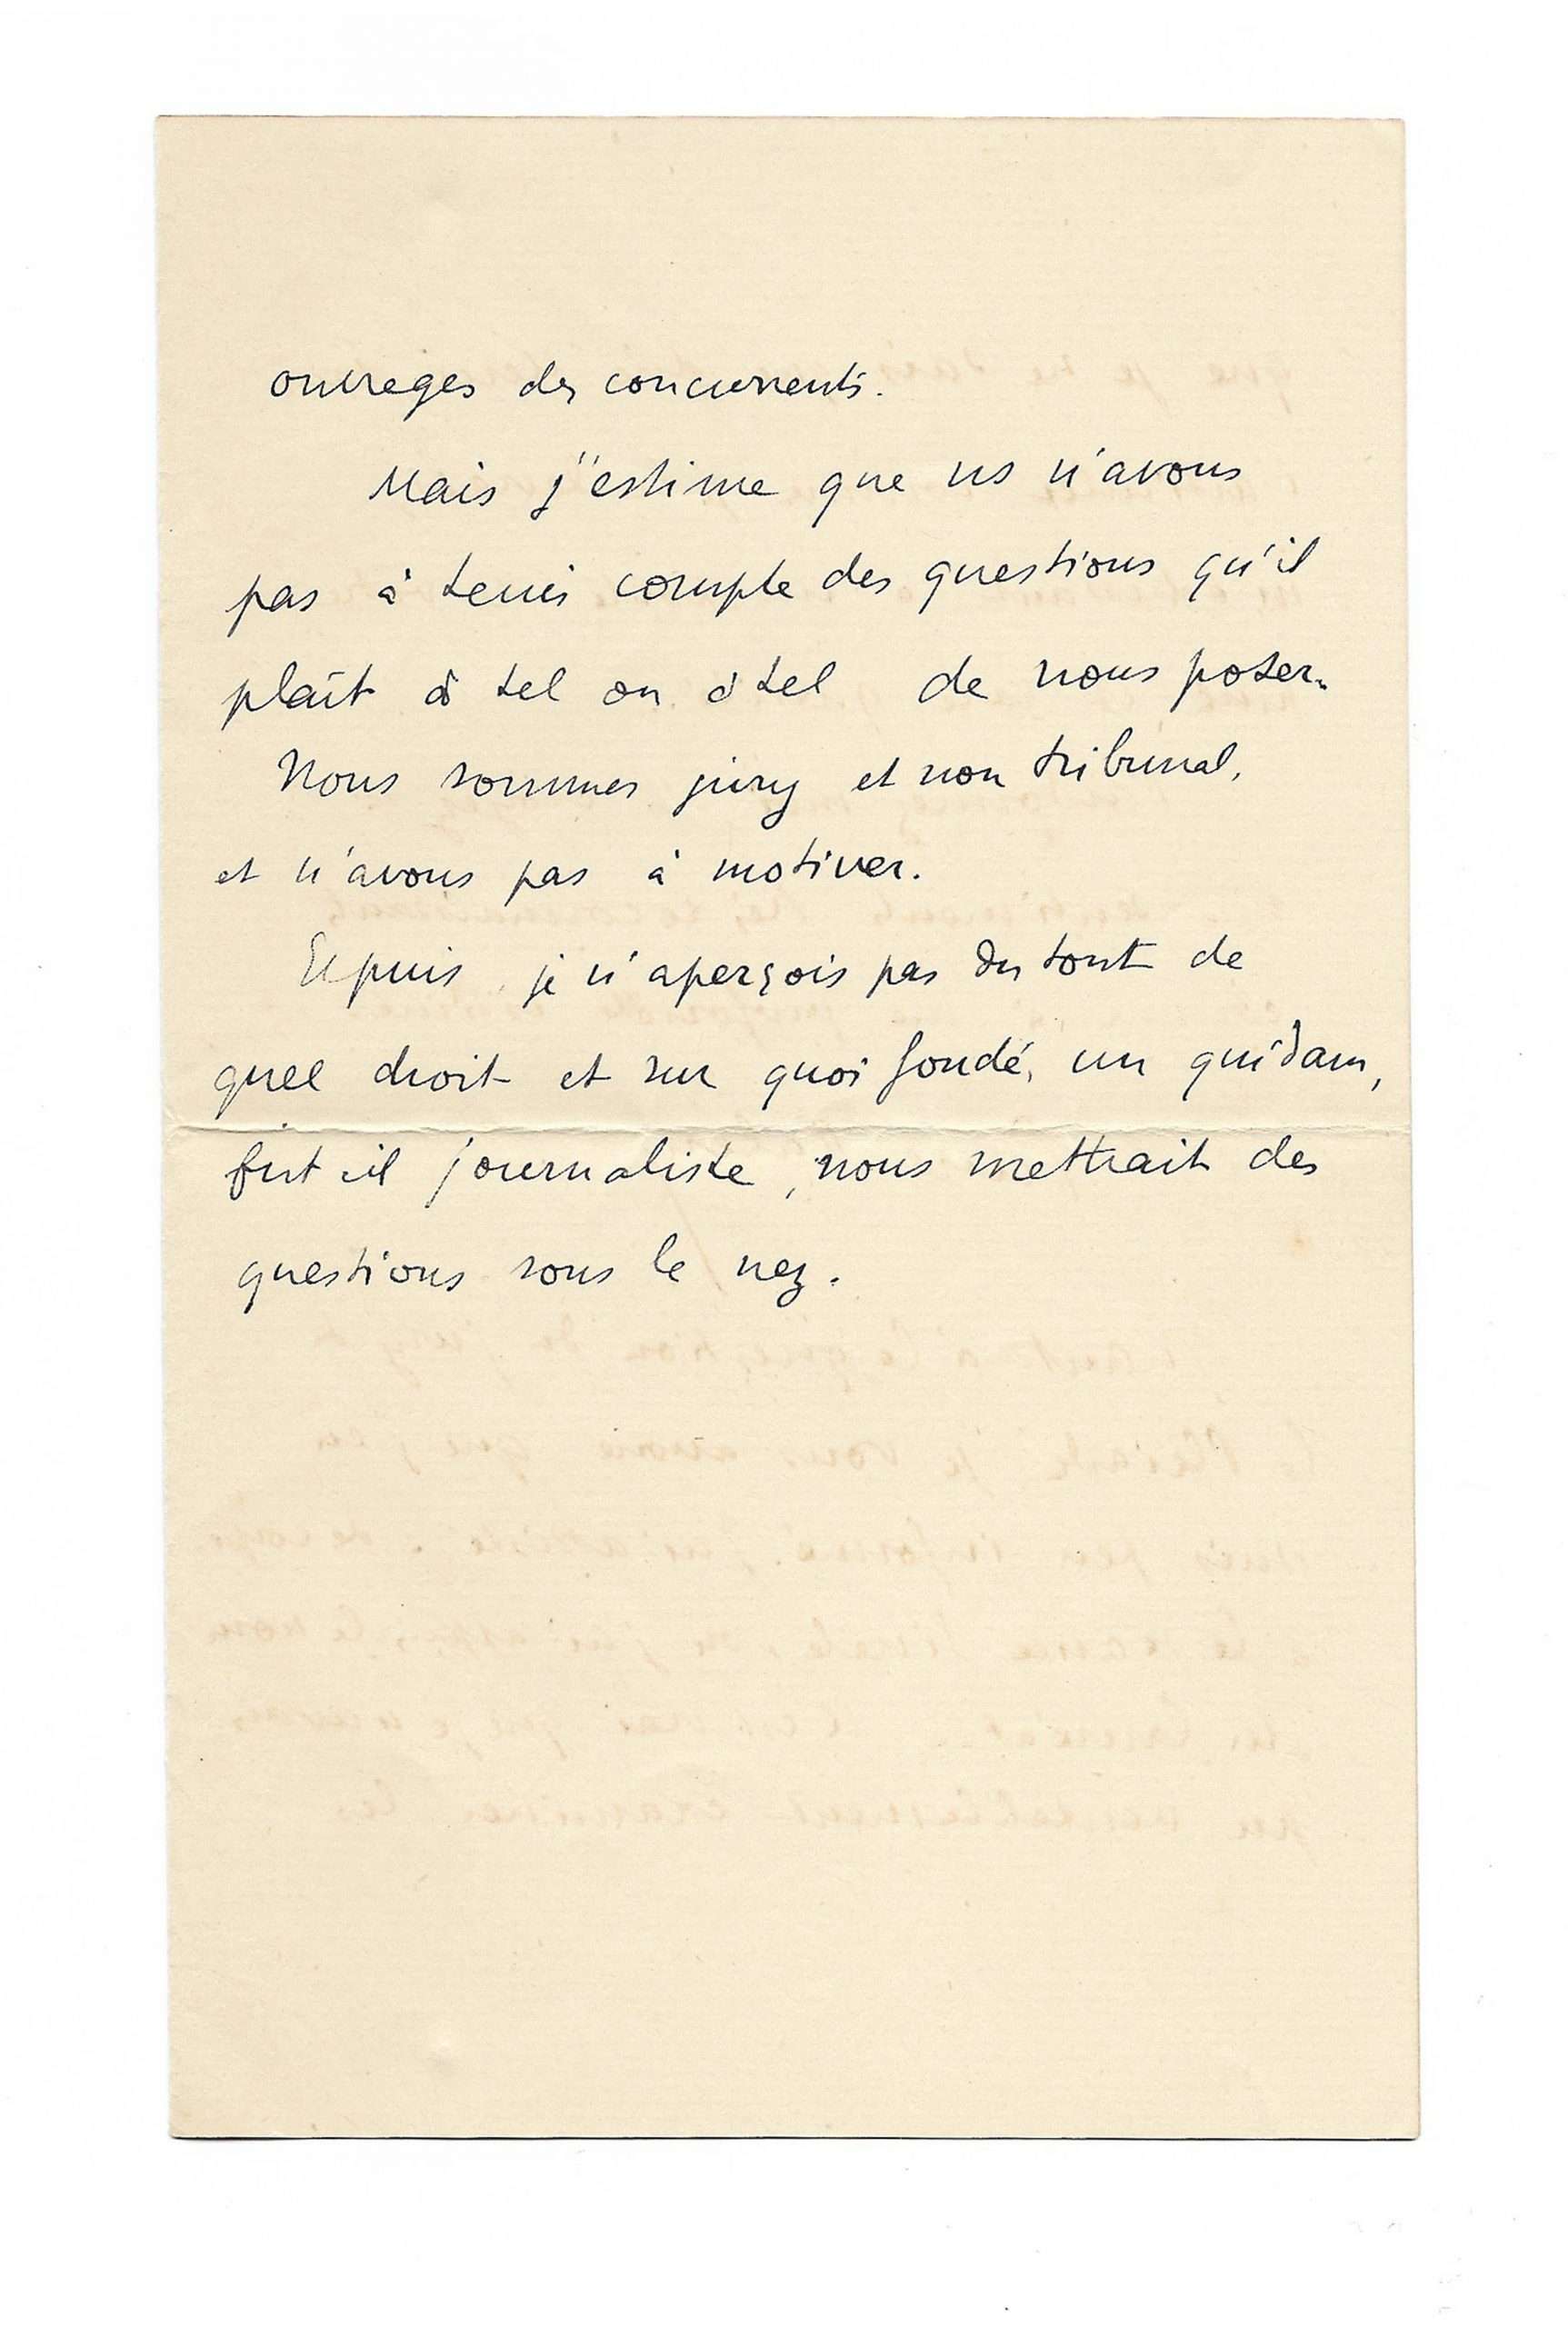 ouvrages des concurrents.
Mais j'estime que ns n'avons
pas à tenir compte des questions qu'il
plaît à tel ou à tel de nous poser.
Nous sommes jury et non tribunal,
et n'avons pas à motiver.
Et puis, je n'aperçois pas du tout de
quel droit et sur quoi fondé, un quidam,
fut-il journaliste, nous mettrait des
questions sous le nez.